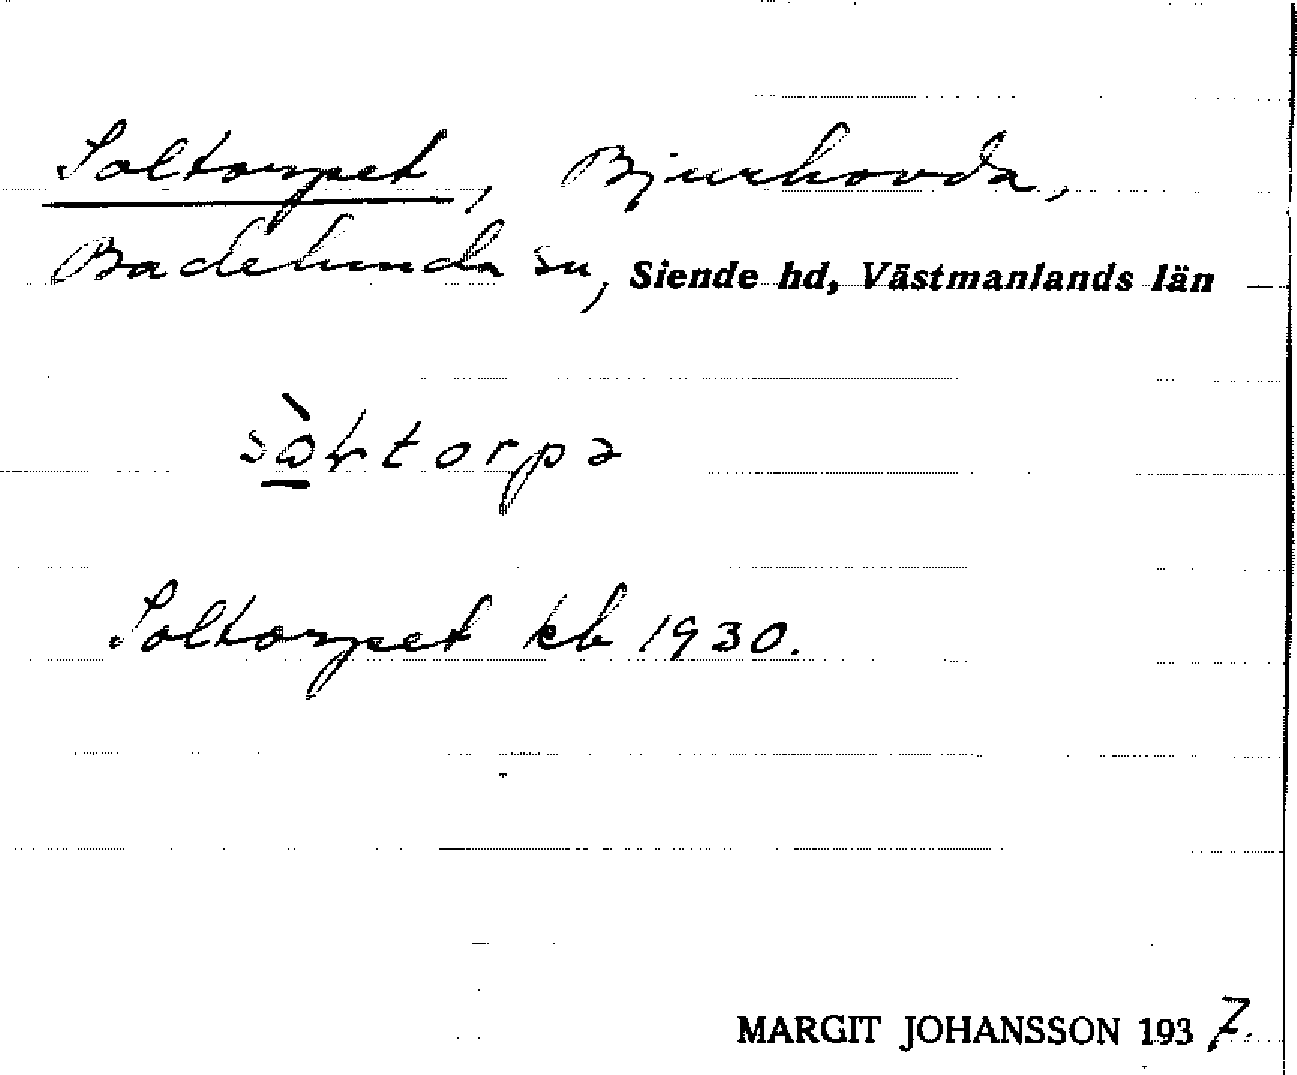 Soltorpet, Bjurhovda,
Badelunda sn, Siende hd, Västmanlands län
Soltorpet kb 1930.
MARGIT JOHANSSON 1937.